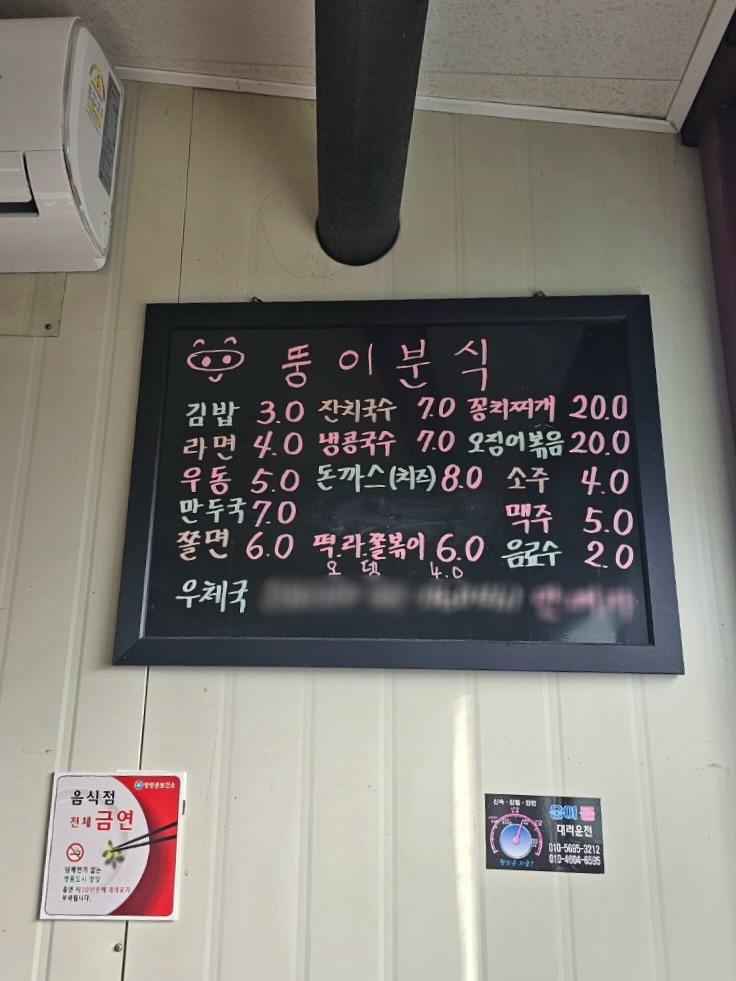 뚱이분식
김밥 3.0 잔치국수 7.0 꽁치찌개 20.0
라면 4.0 냉콩국수 7.0 오징어볶음 20.0
우동 5.0 돈까스(치즈) 8.0 소주 4.0
만두국 7.0 맥주 5.0
쫄면 6.0 떡.라.쫄볶이 6.0 음료수 2.0
오뎅 4.0
우체국
음식점
전체 금연
담배연기 없는
흡연 시 10만원의 과태료가
부과됩니다.
신속·친절·안전
콜
대리운전
010-5695-3212
010-4604-6595